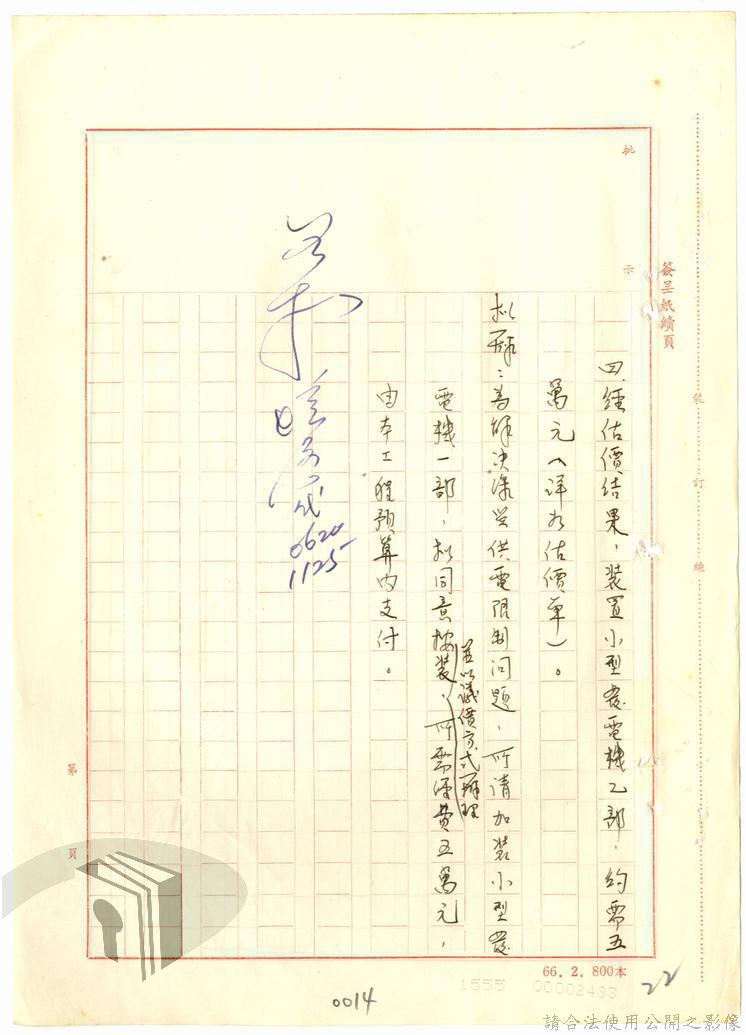 簽呈紙續頁
裝 訂 線
批 示
四、經估價結果,裝置小型發電機乙部,約需五
萬元(詳如估價單)。
擬辦:為解決深受供電限制問題,所請加裝小型發
電機一部,擬同意按裝,所需經費五萬元,
並以議價方式辦理
由本工程預算內支付。
0620
1125
第 頁
66.2.800本
1555 00002483
22
0014
請合法使用公開之影像